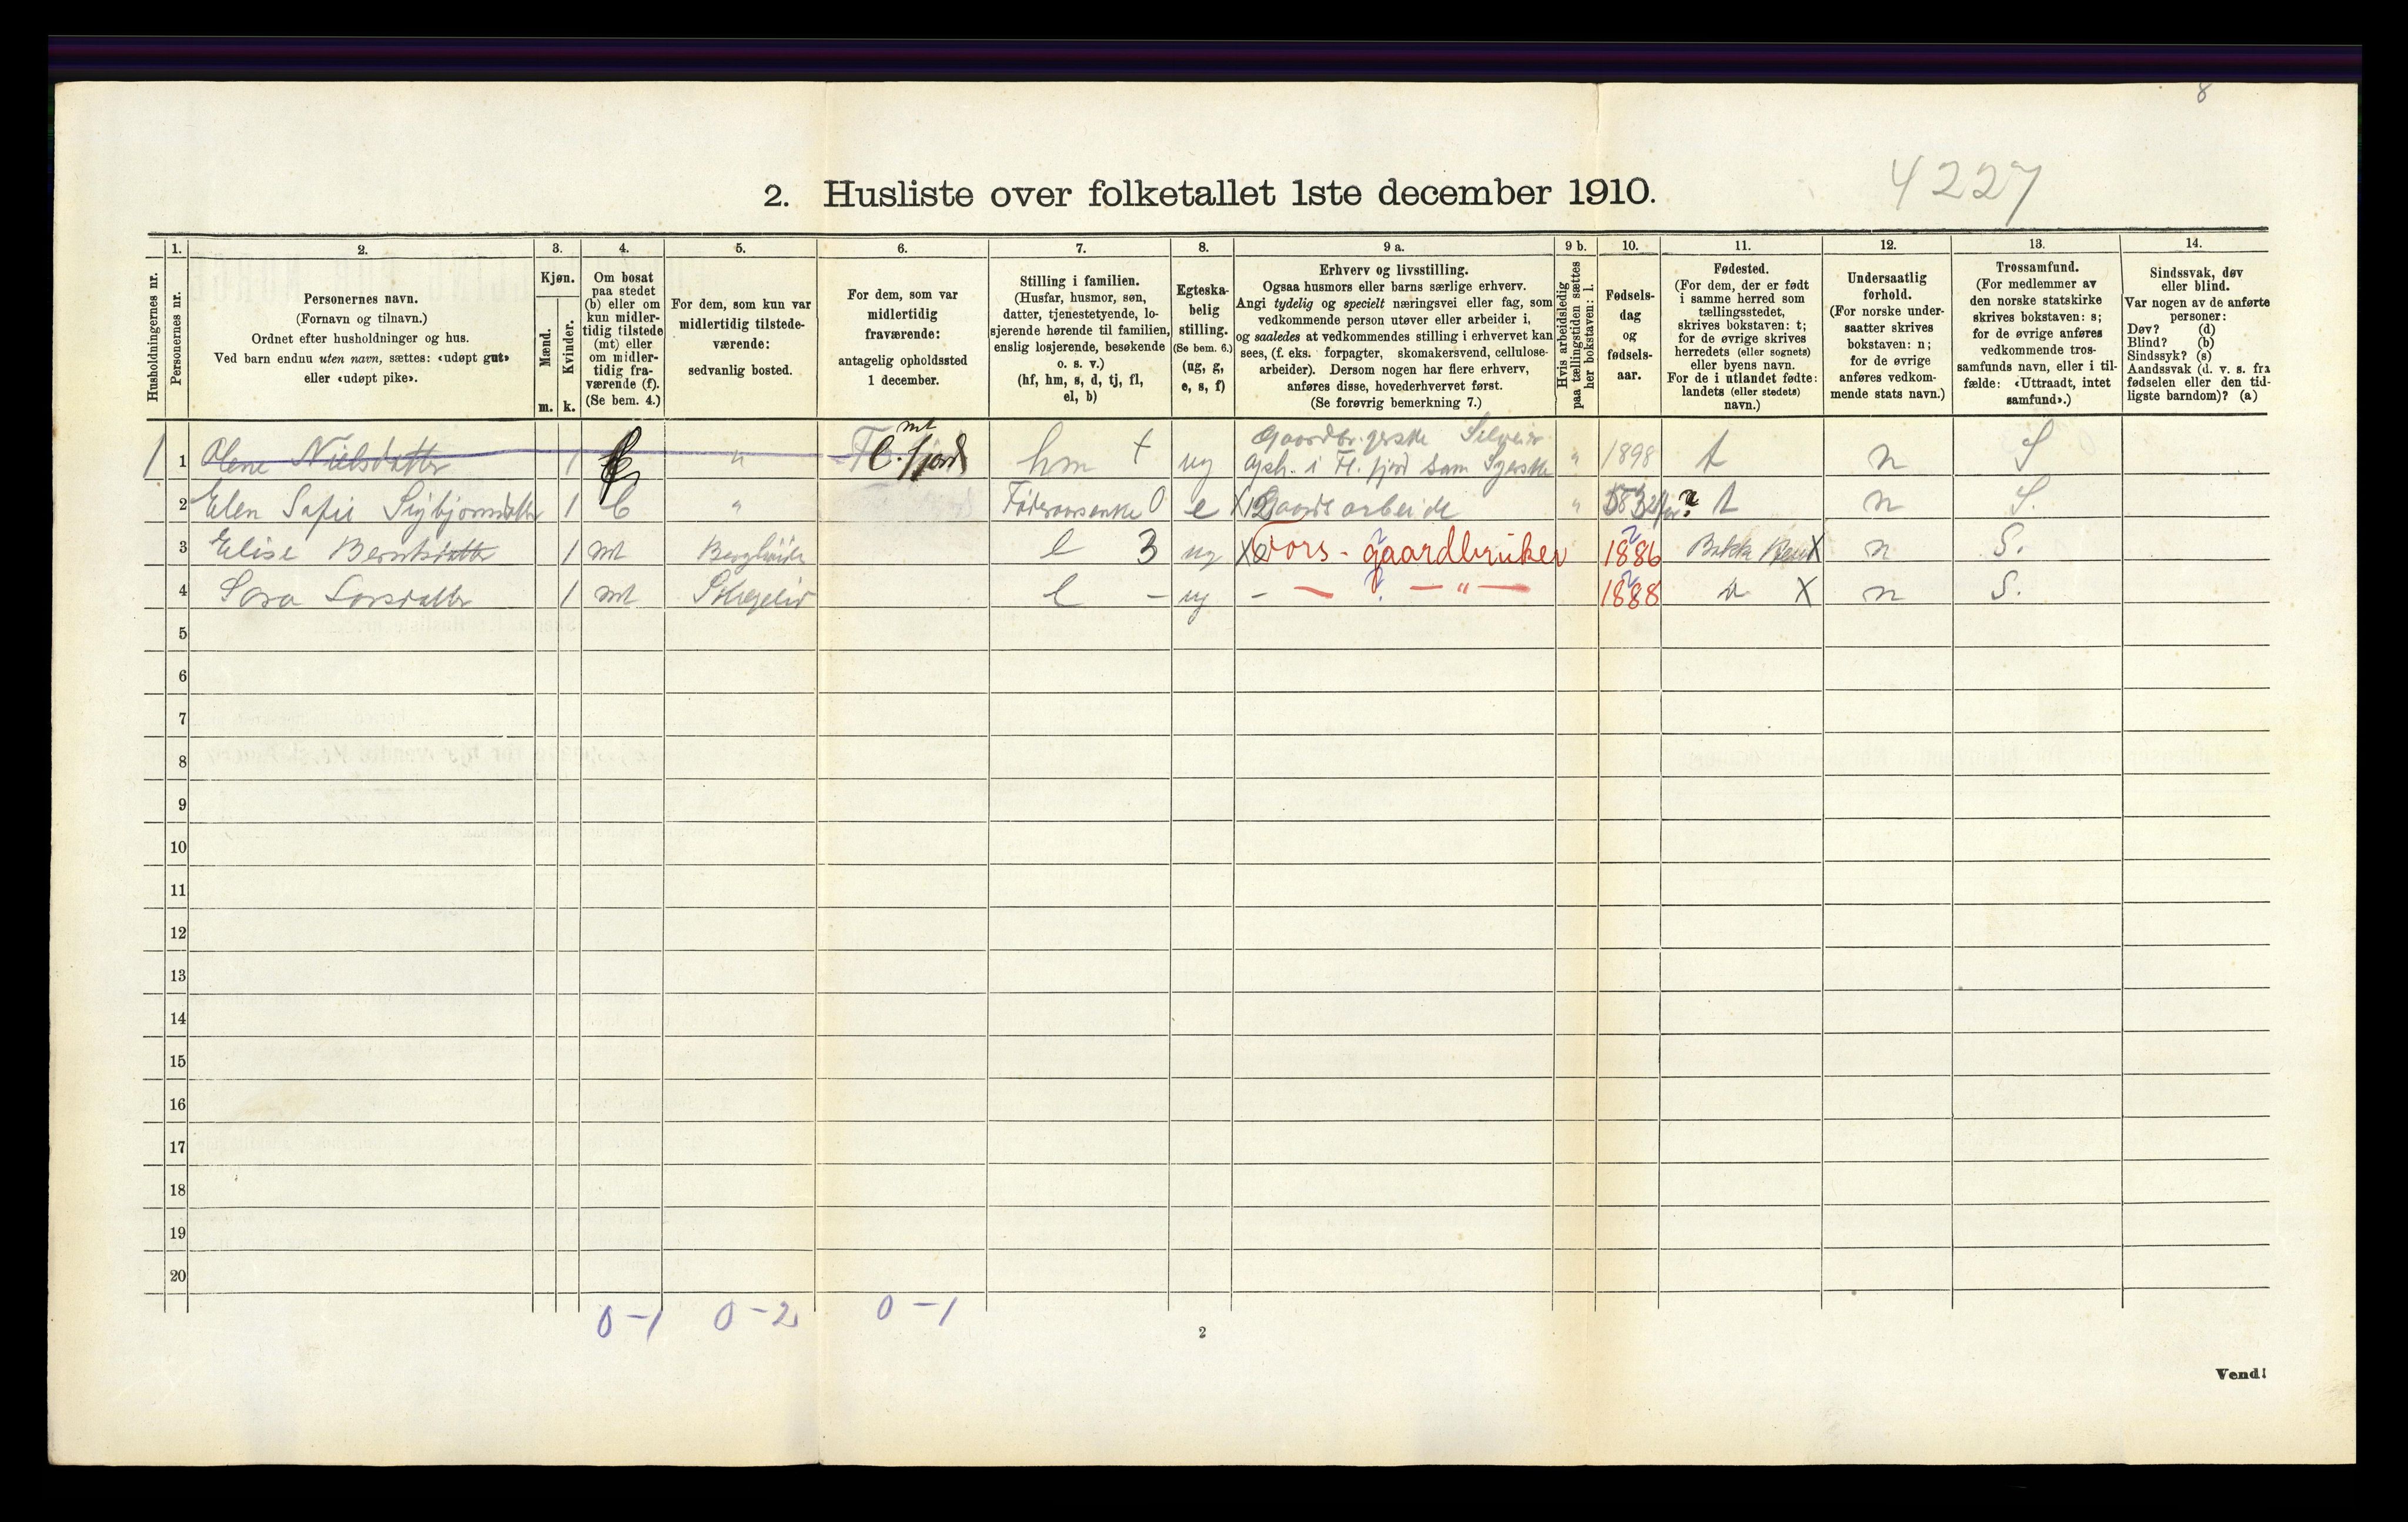 8
4227
2. Husliste over folketallet 1ste december 1910.
Husholdningernes nr.
1.
Personernes nr.
2.
Personernes navn.
(Fornavn og tilnavn.)
Ordnet efter husholdninger og hus.
Ved barn endnu uten navn, sættes: «udøpt gut»
eller «udøpt pike».
3.
Kjøn.
Mænd.
Kvinder.
m. k.
4.
Om bosat
paa stedet
(b) eller om
kun midler-
tidig tilstede
(mt) eller
om midler-
tidig fra-
værende (f).
(Se bem. 4.)
5.
For dem, som kun var
midlertidig tilstede-
værende:
sedvanlig bosted.
6.
For dem, som var
midlertidig
fraværende:
antagelig opholdssted
1 december.
7.
Stilling i familien.
(Husfar, husmor, søn,
datter, tjenestetyende, lo-
sjerende hørende til familien,
enslig losjerende, besøkende
o. s. v.)
(hf, hm, s, d, tj, fl,
el, b)
8.
Egteska-
belig
stilling.
(Se bem. 6.)
(ug, g,
e, s, f)
9 a.
Erhverv og livsstilling.
Ogsaa husmors eller barns særlige erhverv.
Angi tydelig og specielt næringsvei eller fag, som
vedkommende person utøver eller arbeider i,
og saaledes at vedkommendes stilling i erhvervet kan
sees, (f. eks. forpagter, skomakersvend, cellulose-
arbeider). Dersom nogen har flere erhverv,
anføres disse, hovederhvervet først.
(Se forøvrig bemerkning 7.)
9 b.
Hvis arbeidsledig
paa tællingstiden sættes
her bokstaven: l.
10.
Fødsels-
dag
og
fødsels-
aar.
11.
Fødested.
(For dem, der er født
i samme herred som
tællingsstedet,
skrives bokstaven: t;
for de øvrige skrives
herredets (eller sognets)
eller byens navn.
For de i utlandet fødte:
landets (eller stedets)
navn.)
12.
Undersaatlig
forhold.
(For norske under-
saatter skrives
bokstaven: n;
for de øvrige
anføres vedkom-
mende stats navn.)
13.
Trossamfund.
(For medlemmer av
den norske statskirke
skrives bokstaven: s;
for de øvrige anføres
vedkommende tros-
samfunds navn, eller i til-
fælde: «Uttraadt, intet
samfund».)
14.
Sindssvak, døv
eller blind.
Var nogen av de anførte
personer:
Døv? (d)
Blind? (b)
Sindssyk? (s)
Aandssvak (d. v. s. fra
fødselen eller den tid-
ligste barndom)? (a)
1 1 Olene Nielsdatter 1 " mt fjord hm + ug Gaardbr.gerske Selveier
Oph. i Fl. fjord som Syerske " 1898 t n S
2 Elen Sofie Sigbjørnsdatter 1 b " Føderaadsenke 0 e X Gaardsarbeide " ? t n S.
3 Elise Berntsdatter 1 mt l 3 ug X Fors-gaardbruker 1886 Bakke X n S.
4 Sara Larsdatter 1 mt l - ug - — ? — " — 1888 X n S.
5
6
7
8
9
10
11
12
13
14
15
16
17
18
19
20
0-1 0-2 0-1
2
Vend!